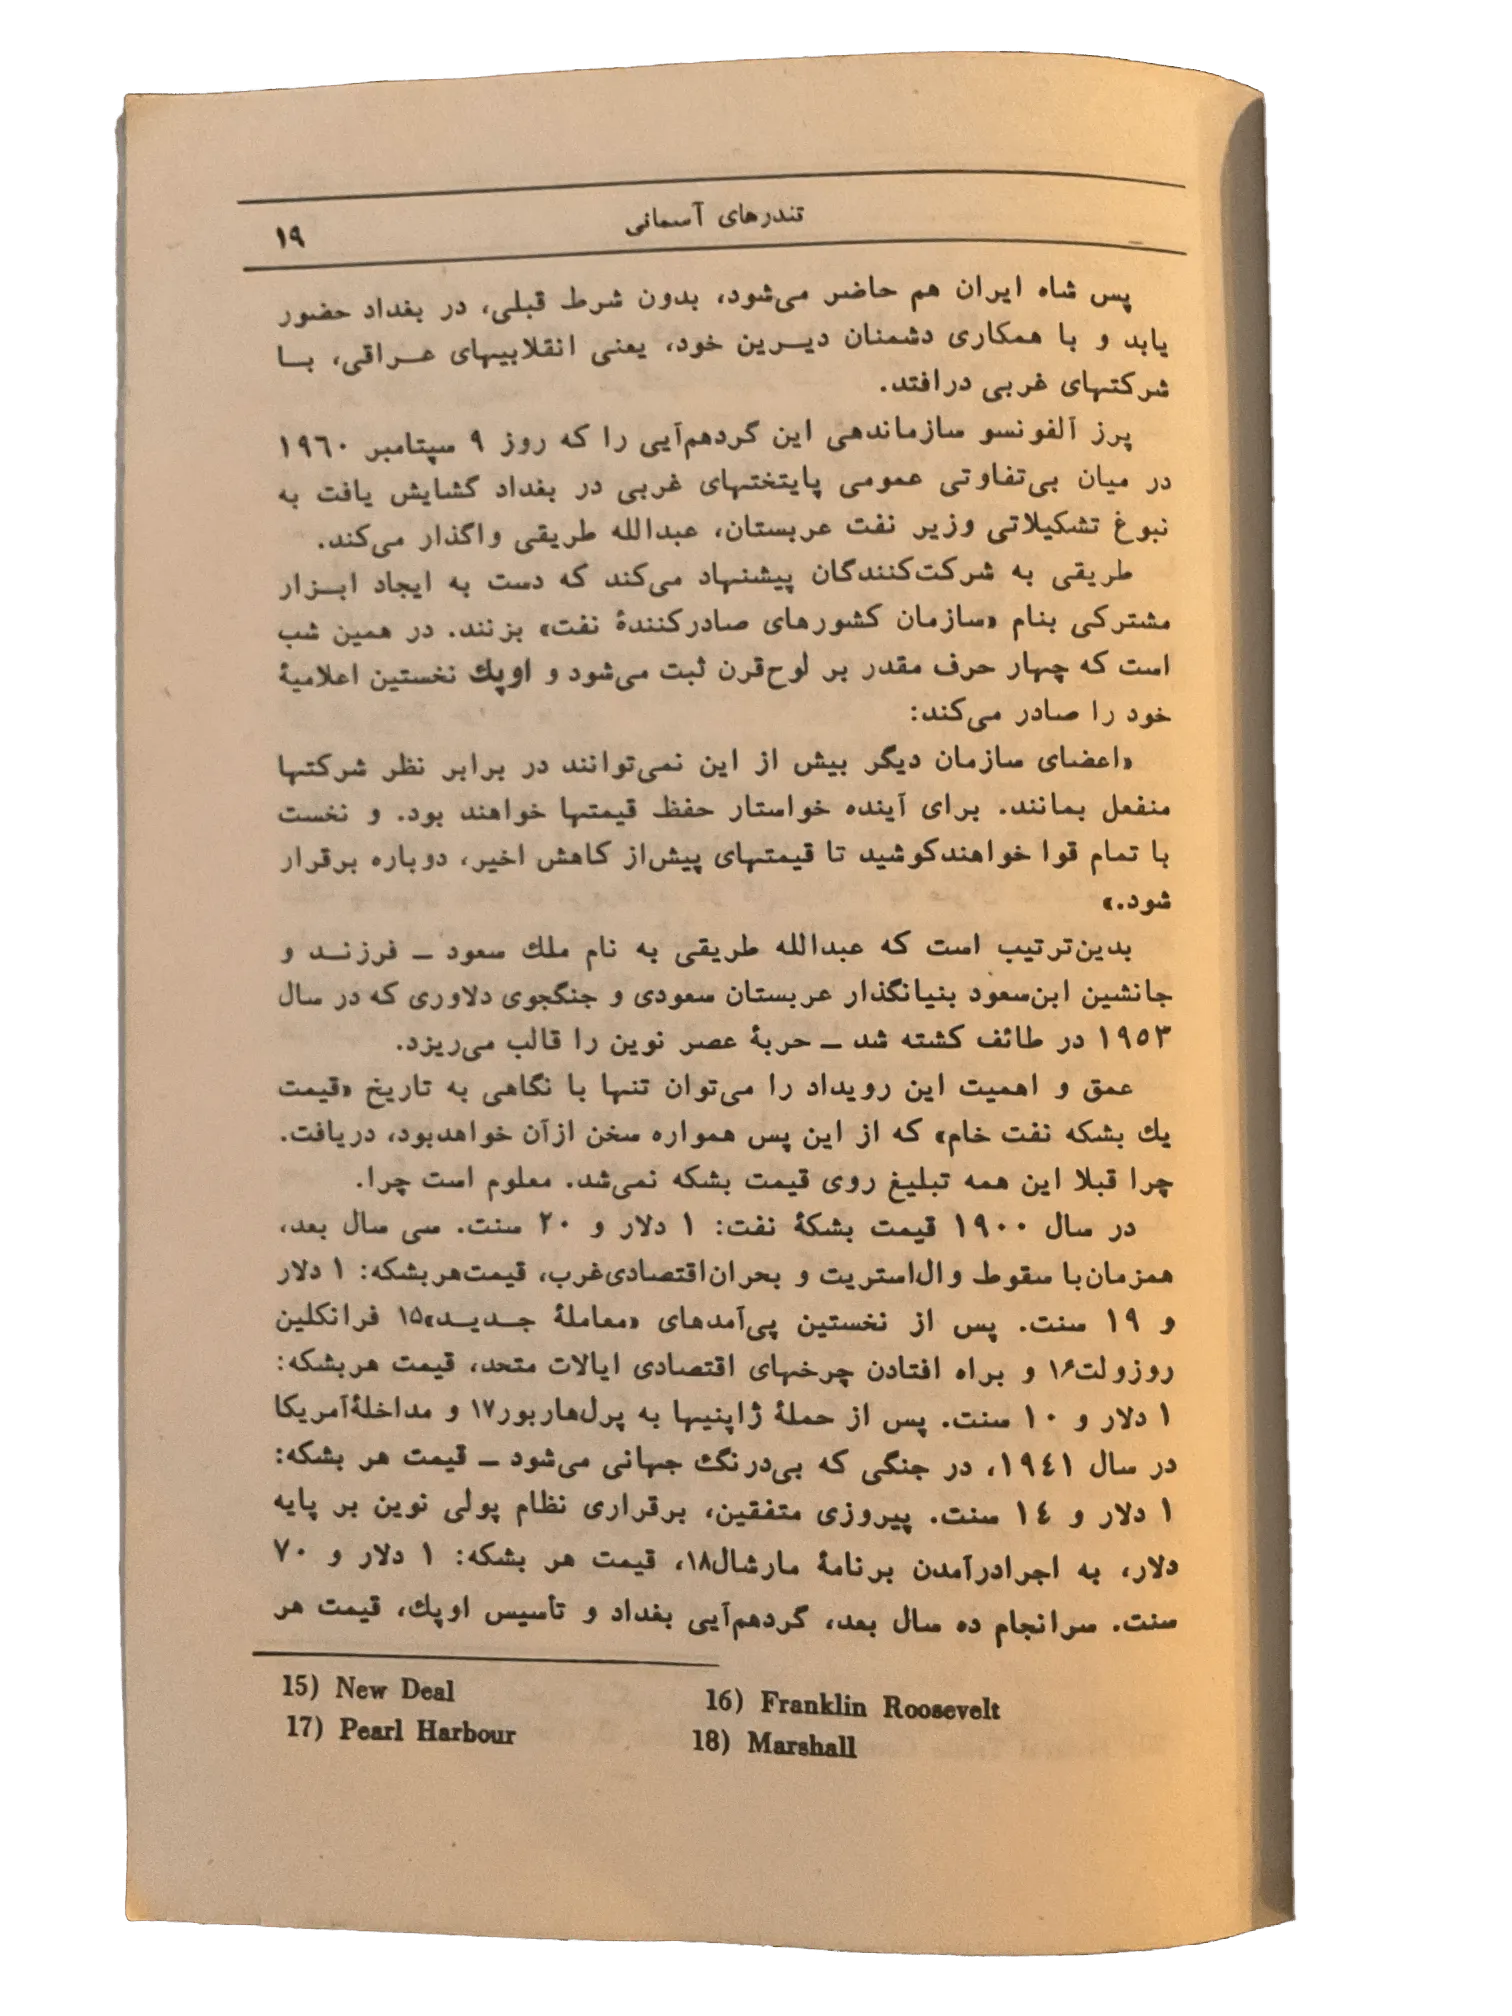 تندرهای آسمانی ۱۹
پس شاه ایران هم حاضر می‌شود، بدون شرط قبلی، در بغداد حضور
یابد و با همکاری دشمنان دیرین خود، یعنی انقلابیهای عراقی، با
شرکتهای غربی درافتد.
پرز آلفونسو سازماندهی این گردهم‌آیی را که روز ۹ سپتامبر ۱۹۶۰
در میان بی‌تفاوتی عمومی پایتختهای غربی در بغداد گشایش یافت به
نبوغ تشکیلاتی وزیر نفت عربستان، عبدالله طریقی واگذار می‌کند.
طریقی به شرکت‌کنندگان پیشنهاد می‌کند که دست به ایجاد ابزار
مشترکی بنام «سازمان کشورهای صادرکنندهٔ نفت» بزنند. در همین شب
است که چهار حرف مقدر بر لوح‌قرن ثبت می‌شود و اوپك نخستین اعلامیهٔ
خود را صادر می‌کند:
«اعضای سازمان دیگر بیش از این نمی‌توانند در برابر نظر شرکتها
منفعل بمانند. برای آینده خواستار حفظ قیمتها خواهند بود. و نخست
با تمام قوا خواهندکوشید تا قیمتهای پیش‌از کاهش اخیر، دوباره برقرار
شود.»
بدین‌ترتیب است که عبدالله طریقی به نام ملك سعود ــ فرزند و
جانشین ابن‌سعود بنیانگذار عربستان سعودی و جنگجوی دلاوری که در سال
۱۹۵۳ در طائف کشته شد ــ حربهٔ عصر نوین را قالب می‌ریزد.
عمق و اهمیت این رویداد را می‌توان تنها با نگاهی به تاریخ «قیمت
یك بشکه نفت خام» که از این پس همواره سخن ازآن خواهدبود، دریافت.
چرا قبلا این همه تبلیغ روی قیمت بشکه نمی‌شد. معلوم است چرا.
در سال ۱۹۰۰ قیمت بشکهٔ نفت: ۱ دلار و ۲۰ سنت. سی سال بعد،
همزمان‌با سقوط وال‌استریت و بحران‌اقتصادی‌غرب، قیمت‌هربشکه: ۱ دلار
و ۱۹ سنت. پس از نخستین پی‌آمدهای «معاملهٔ جدید»۱۵ فرانکلین
روزولت۱۶ و براه افتادن چرخهای اقتصادی ایالات متحد، قیمت هربشکه:
۱ دلار و ۱۰ سنت. پس از حملهٔ ژاپنیها به پرل‌هاربور۱۷ و مداخلهٔ‌آمریکا
در سال ۱۹۴۱، در جنگی که بی‌درنگ جهانی می‌شود ــ قیمت هر بشکه:
۱ دلار و ۱۴ سنت. پیروزی متفقین، برقراری نظام پولی نوین بر پایه
دلار، به اجرادرآمدن برنامهٔ مارشال۱۸، قیمت هر بشکه: ۱ دلار و ۷۰
سنت. سرانجام ده سال بعد، گردهم‌آیی بغداد و تأسیس اوپك، قیمت هر
15) New Deal 16) Franklin Roosevelt
17) Pearl Harbour 18) Marshall